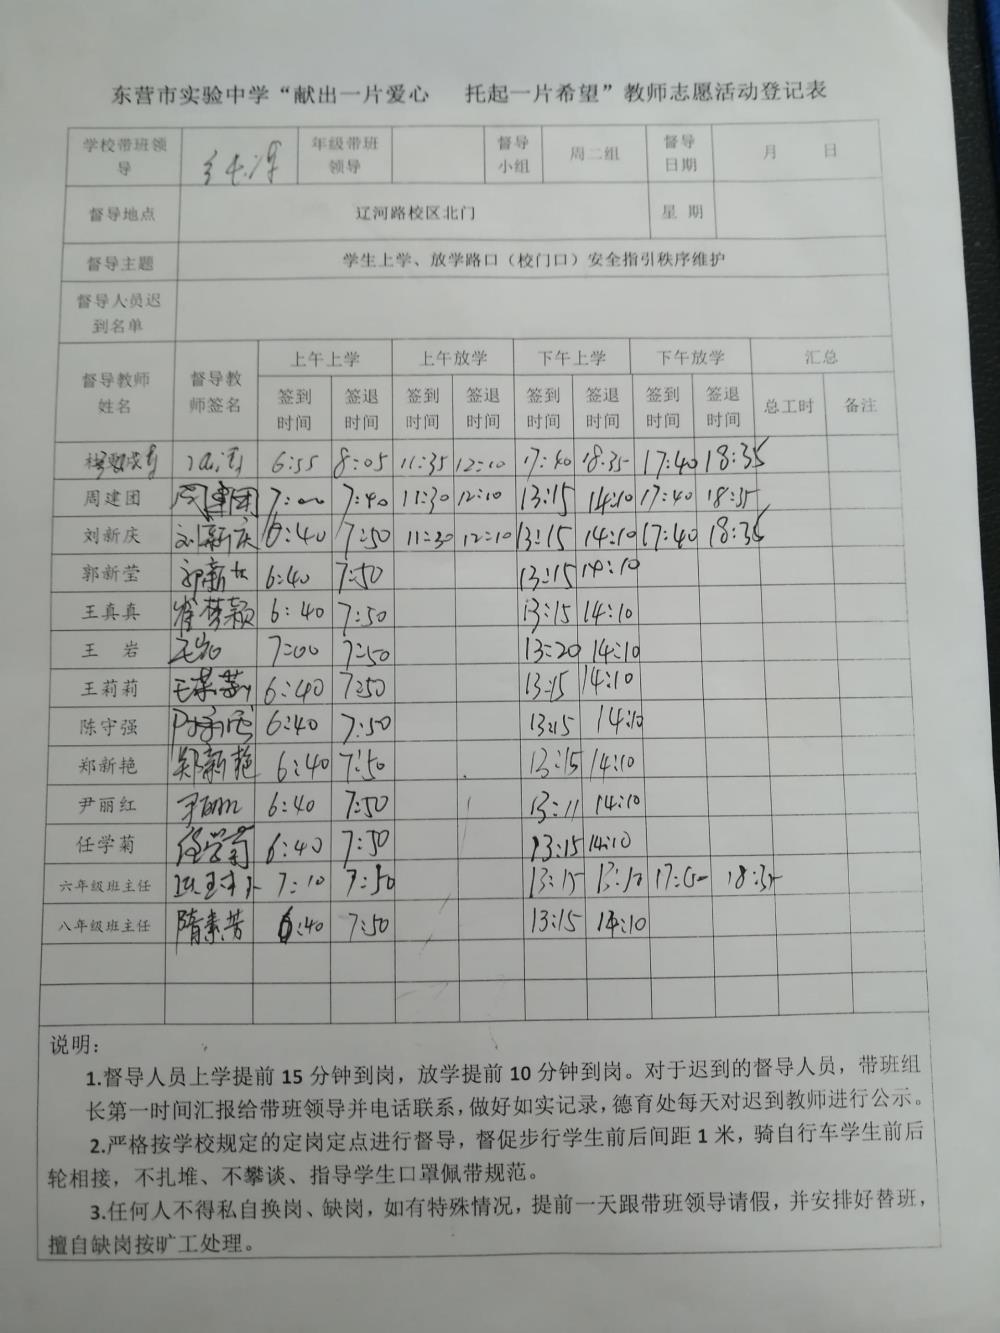 东营市实验中学“献出一片爱心 托起一片希望”教师志愿活动登记表
学校带班领导 年级带班领导 督导小组 周二组 督导日期 月 日
督导地点 辽河路校区北门 星 期
督导主题 学生上学、放学路口（校门口）安全指引秩序维护
督导人员迟到名单
督导教师姓名 督导教师签名 上午上学 上午放学 下午上学 下午放学 汇总
签到时间 签退时间 签到时间 签退时间 签到时间 签退时间 签到时间 签退时间 总工时 备注
6:55 8:05 11:35 12:10 17:40 18:35 17:40 18:35
周建团 周建团 7:00 7:40 11:30 12:10 13:15 14:10 17:40 18:35
刘新庆 刘新庆 6:40 7:50 11:30 12:10 13:15 14:10 17:40 18:35
郭新莹 郭新 6:40 7:50 13:15 14:10
王真真 崔梦颖 6:40 7:50 13:15 14:10
王 岩 王岩 7:00 7:50 13:20 14:10
王莉莉 王莉莉 6:40 7:50 13:15 14:10
陈守强 陈守强 6:40 7:50 13:15 14:10
郑新艳 郑新艳 6:40 7:50 13:15 14:10
尹丽红 尹丽红 6:40 7:50 13:11 14:10
任学菊 任学菊 6:40 7:50 13:15 14:10
六年级班主任 7:10 7:50 13:15 13:10 18:35
八年级班主任 隋素芳 6:40 7:50 13:15 14:10
说明：
1.督导人员上学提前 15 分钟到岗，放学提前 10 分钟到岗。对于迟到的督导人员，带班组
长第一时间汇报给带班领导并电话联系，做好如实记录，德育处每天对迟到教师进行公示。
2.严格按学校规定的定岗定点进行督导，督促步行学生前后间距 1 米，骑自行车学生前后
轮相接，不扎堆、不攀谈、指导学生口罩佩带规范。
3.任何人不得私自换岗、缺岗，如有特殊情况，提前一天跟带班领导请假，并安排好替班，
擅自缺岗按旷工处理。